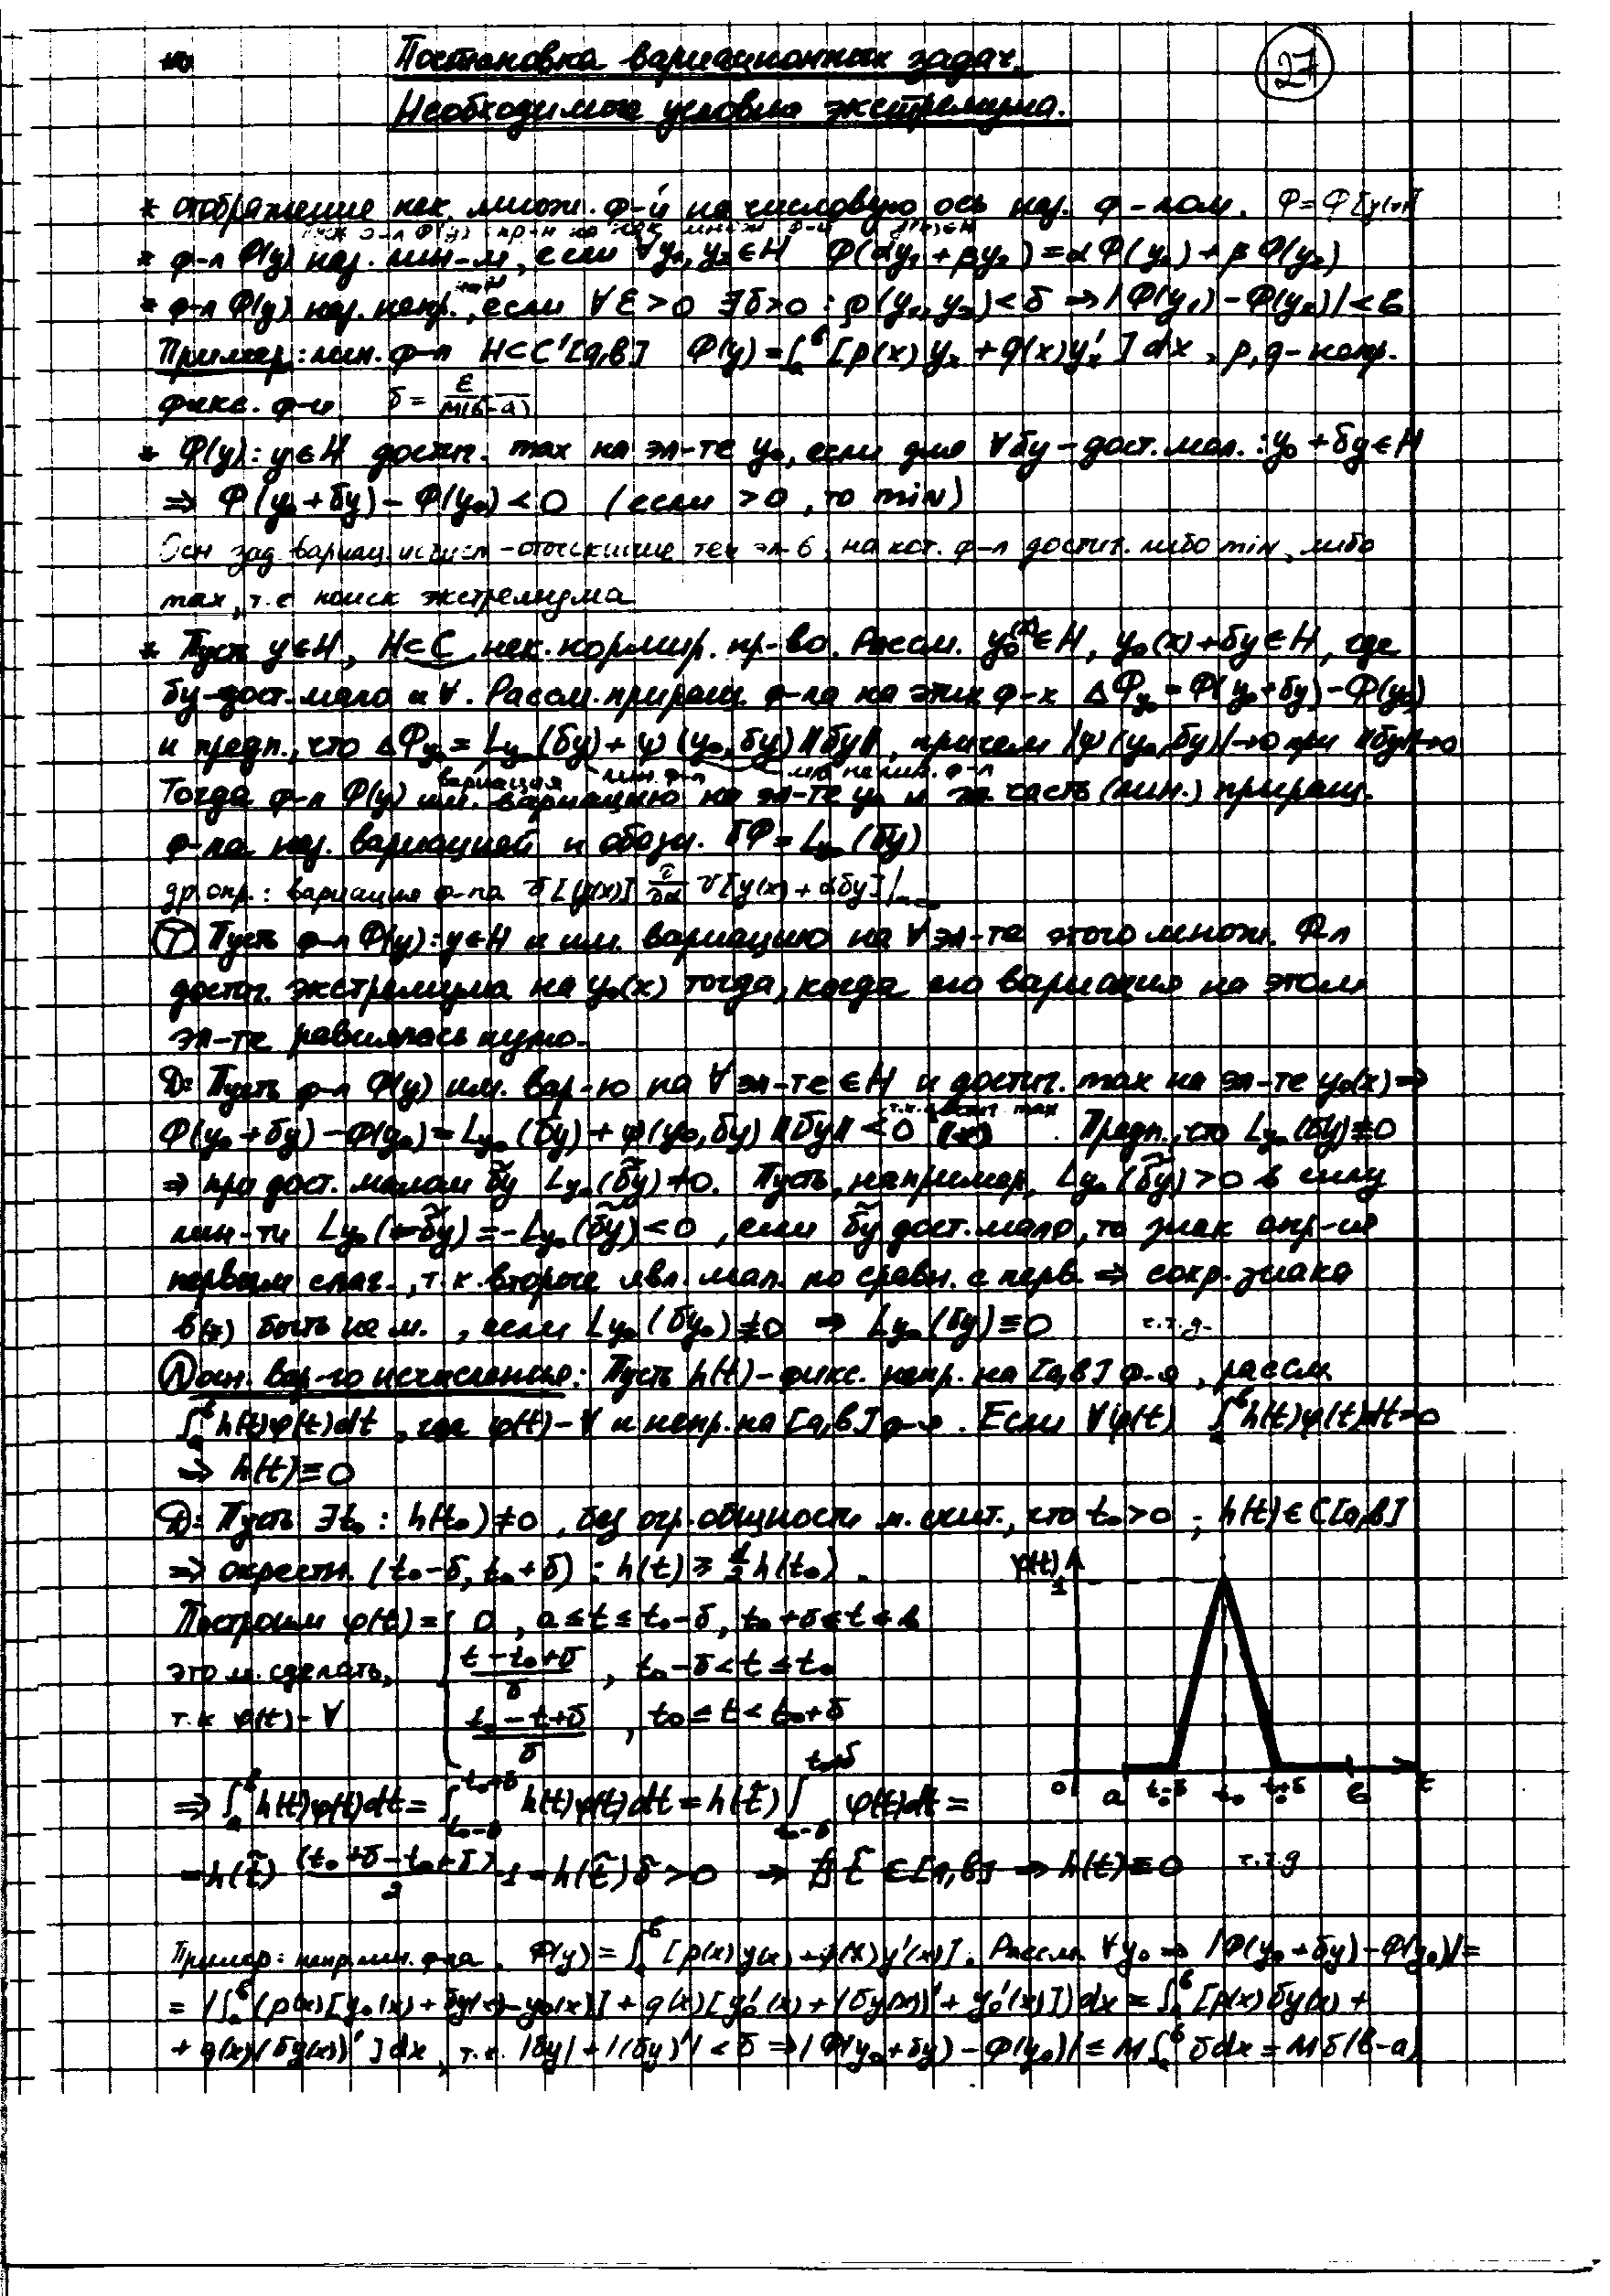 Постановка вариационных задач.
27
Необходимое условие экстремума.
* отображение нек. множ. ф-й на числовую ось наз. ф-лом. Ф=Ф[y(x)]
* ф-л Ф(y) наз. лин-м, если ∀y₁, y₂∈H Ф(αy₁+βy₂)=αФ(y₁)+βФ(y₂)
* ф-л Ф(y) наз. непр., если ∀ε>0 ∃δ>0 : ρ(y₁,y₂)<δ ⇒ |Ф(y₁)-Ф(y₂)|<ε
Пример: лин. ф-л H⊂C'[a,в] Ф(y)=∫ₐᵇ[p(x)yₓ+q(x)y'ₓ]dx, p,q-непр.
фикс. ф-и δ = ε/M(в-a)
* Ф(y): y∈H достиг. max на эл-те y₀, если для ∀δy-дост. мал.: y₀+δy∈H
⇒ Ф(y₀+δy)-Ф(y₀)<0 (если >0, то min)
Осн зад. вариац. исчисл - отыскание тех эл-в, на кот. ф-л достиг. либо min, либо
max, т.е поиск экстремума
* Пусть y∈H, H⊂C нек. нормир. пр-во. Рассм. y₀(x)∈H, y₀(x)+δy∈H, где
δy-дост. мало и ∀. Рассм. приращ. ф-ла на этих ф-х ΔФy₀=Ф(y₀+δy)-Ф(y₀)
и предп., что ΔФy₀=Ly₀(δy)+ψ(y₀,δy)‖δy‖, причем |ψ(y₀,δy)|→0 при ‖δy‖→0
вариация лин. ф-л нелин. ф-л
Тогда ф-л Ф(y) им. вариацию на эл-те y₀ и часть (лин.) приращ.
ф-ла наз. вариацией и обозн. δФ=Ly₀(δy)
др. опр.: вариация ф-ла
Ⓣ Пусть ф-л Ф(y): y∈H и им. вариацию на ∀ эл-те этого множ. Ф-л
достиг. экстремума на y₀(x) тогда, когда его вариация на этом
эл-те равнялась нулю.
Д: Пусть ф-л Ф(y) им. вар-ю на ∀ эл-те∈H и достиг. max на эл-те y₀(x)⇒
т.к. достиг max
Ф(y₀+δy)-Ф(y₀)=Ly₀(δy)+ψ(y₀,δy)‖δy‖<0 (*). Предп., что Ly₀(δy)≢0
⇒ при дост. малом δ̃y Ly₀(δ̃y)≠0. Пусть, например, Ly₀(δ̃y)>0 в силу
лин-ти Ly₀(-δ̃y)=-Ly₀(δ̃y)<0, если δ̃y дост. мало, то знак опр-ся
первым слаг., т.к. второе явл. мал. по сравн. с перв. ⇒ сохр. знака
в(*) быть не м., если Ly₀(δy₀)≢0 ⇒ Ly₀(δy)≡0 ч.т.д.
Ⓛ осн. вар-го исчисления: Пусть h(t)-фикс. непр. на [a,в] ф-я, рассм
∫ₐᵇh(t)φ(t)dt, где φ(t)-∀ и непр. на [a,в] ф-я. Если ∀φ(t) ∫ₐᵇh(t)φ(t)dt=0
⇒ h(t)≡0
Д: Пусть ∃t₀: h(t₀)≠0, без огр. общности м. счит., что t₀>0; h(t)∈C[a,в]
⇒ окрестн. (t₀-δ, t₀+δ): h(t)≥½h(t₀).
Построим φ(t)={ 0, a≤t≤t₀-δ, t₀+δ≤t≤в
это м. сделать, (t-t₀+δ)/δ, t₀-δ<t≤t₀
т.к φ(t)-∀ (t₀-t+δ)/δ, t₀≤t<t₀+δ
φ(t) 1
0 a t₀-δ t₀ t₀+δ в t
⇒∫ₐᵇh(t)φ(t)dt=∫h(t)φ(t)dt=h(t̃)∫φ(t)dt=
=h(t̃) (t₀+δ-t₀+δ)/2 ·1=h(t̃)δ>0 ⇒ ∄ t̃∈[a,в] ⇒ h(t)≡0 ч.т.д
Пример: непр. лин. ф-ла. Ф(y)=∫ₐᵇ[p(x)y(x)+q(x)y'(x)]. Рассм. ∀y₀ ⇒ |Ф(y₀+δy)-Ф(y₀)|=
=|∫ₐᵇ(p(x)[y₀(x)+δy(x)-y₀(x)]+q(x)[y₀'(x)+(δy(x))'+y₀'(x)])dx=∫ₐᵇ[p(x)δy(x)+
+q(x)(δy(x))']dx, т.к. |δy|+|(δy)'|<δ ⇒|Ф(y₀+δy)-Ф(y₀)|≤M∫ₐᵇδdx=Mδ(в-a)